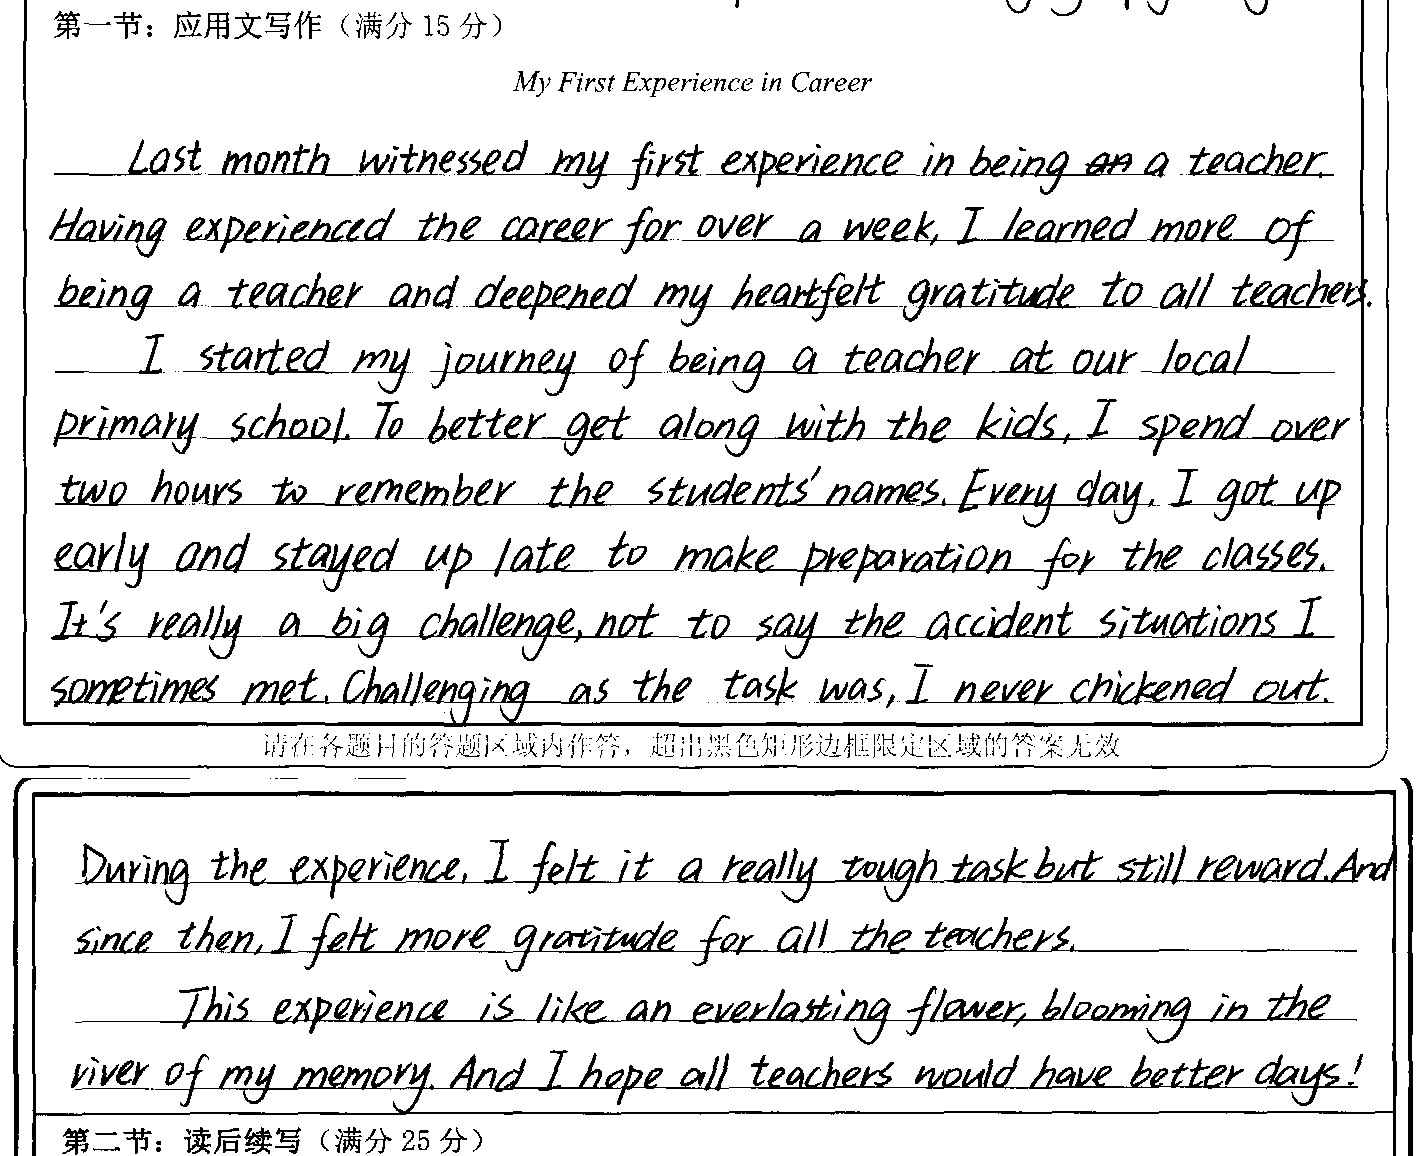 第一节：应用文写作（满分 15 分）
My First Experience in Career
Last month witnessed my first experience in being an a teacher.
Having experienced the career for over a week, I learned more of
being a teacher and deepened my heartfelt gratitude to all teachers.
I started my journey of being a teacher at our local
primary school. To better get along with the kids, I spend over
two hours to remember the students' names. Every day, I got up
early and stayed up late to make preparation for the classes.
It's really a big challenge, not to say the accident situations I
sometimes met. Challenging as the task was, I never chickened out.
请在各题目的答题区域内作答，超出黑色矩形边框限定区域的答案无效
During the experience, I felt it a really tough task but still reward. And
since then, I felt more gratitude for all the teachers.
This experience is like an everlasting flower, blooming in the
river of my memory. And I hope all teachers would have better days!
第二节：读后续写（满分 25 分）